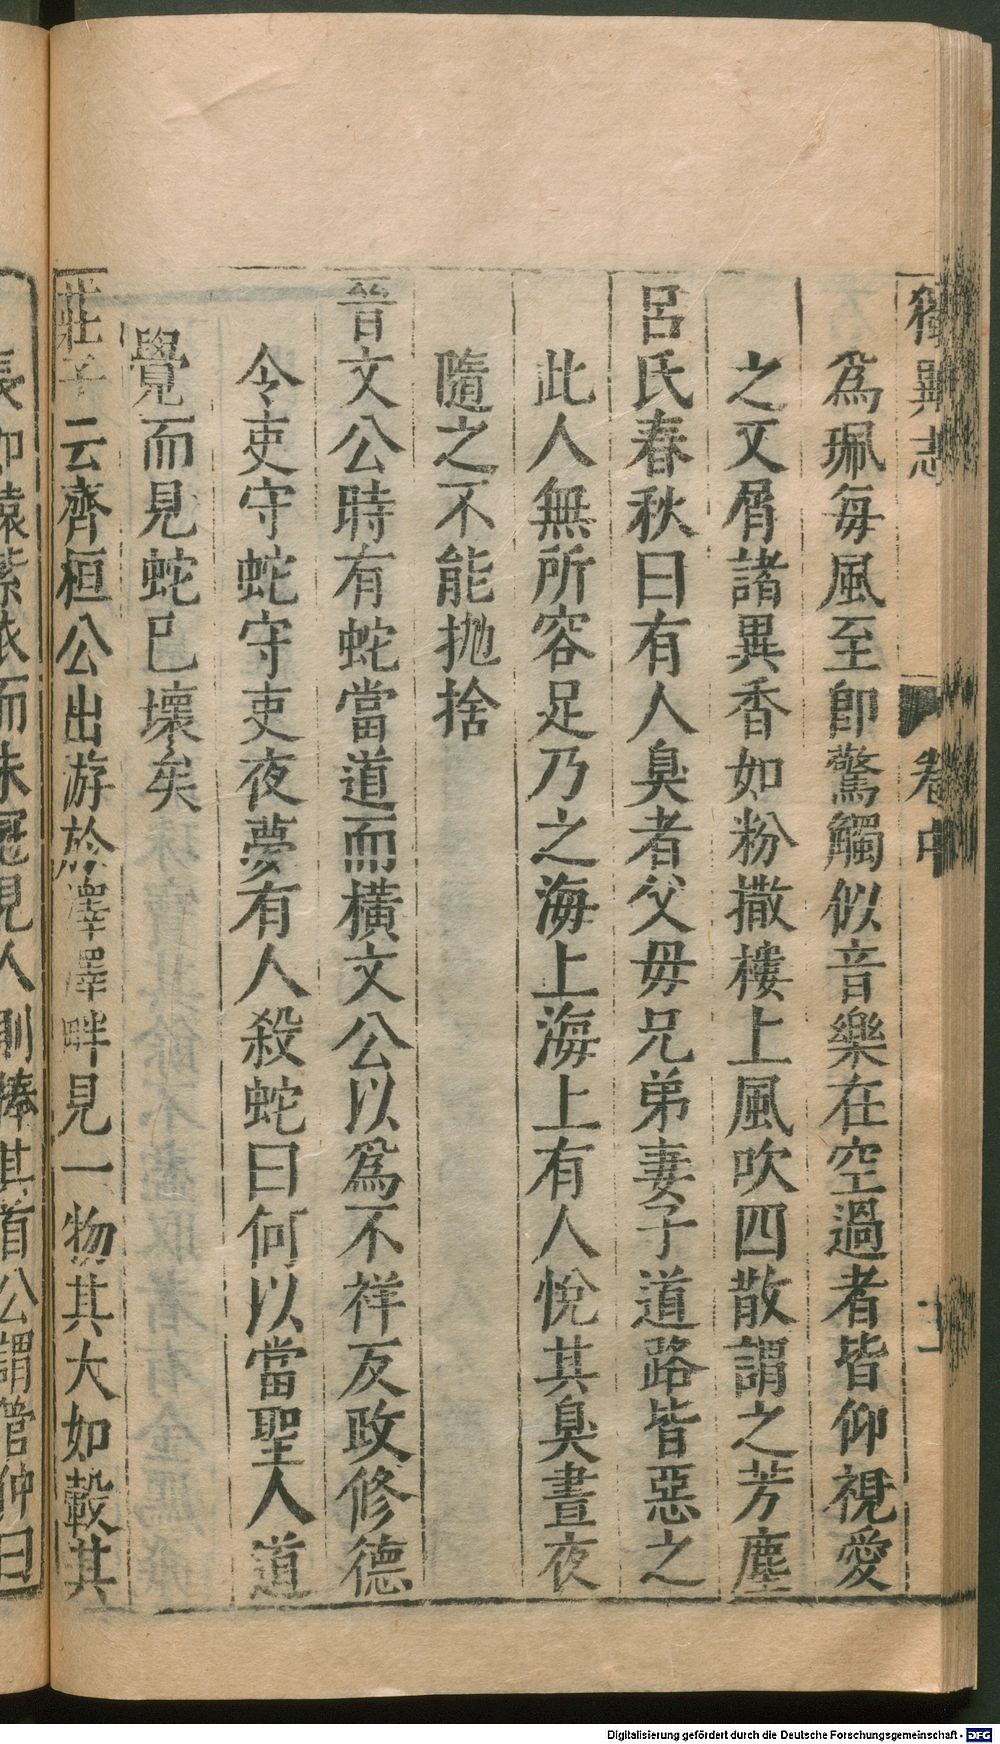 獨異志
卷中
爲珮每風至卽驚觸似音樂在空過者皆仰視愛
之又屑諸異香如粉撒樓上風吹四散謂之芳塵
呂氏春秋曰有人臭者父毋兄弟妻子道路皆惡之
此人無所容足乃之海上海上有人悅其臭晝夜
隨之不能拋捨
晉文公時有蛇當道而橫文公以爲不祥反政修德
令吏守蛇守吏夜夢有人殺蛇曰何以當聖人道
覺而見蛇已壞矣
莊子云齊桓公出游於澤澤畔見一物其大如轂其
長如轅紫衣而朱冠見人則捧其首公謂管仲曰
Digitalisierung gefördert durch die Deutsche Forschungsgemeinschaft - DFG